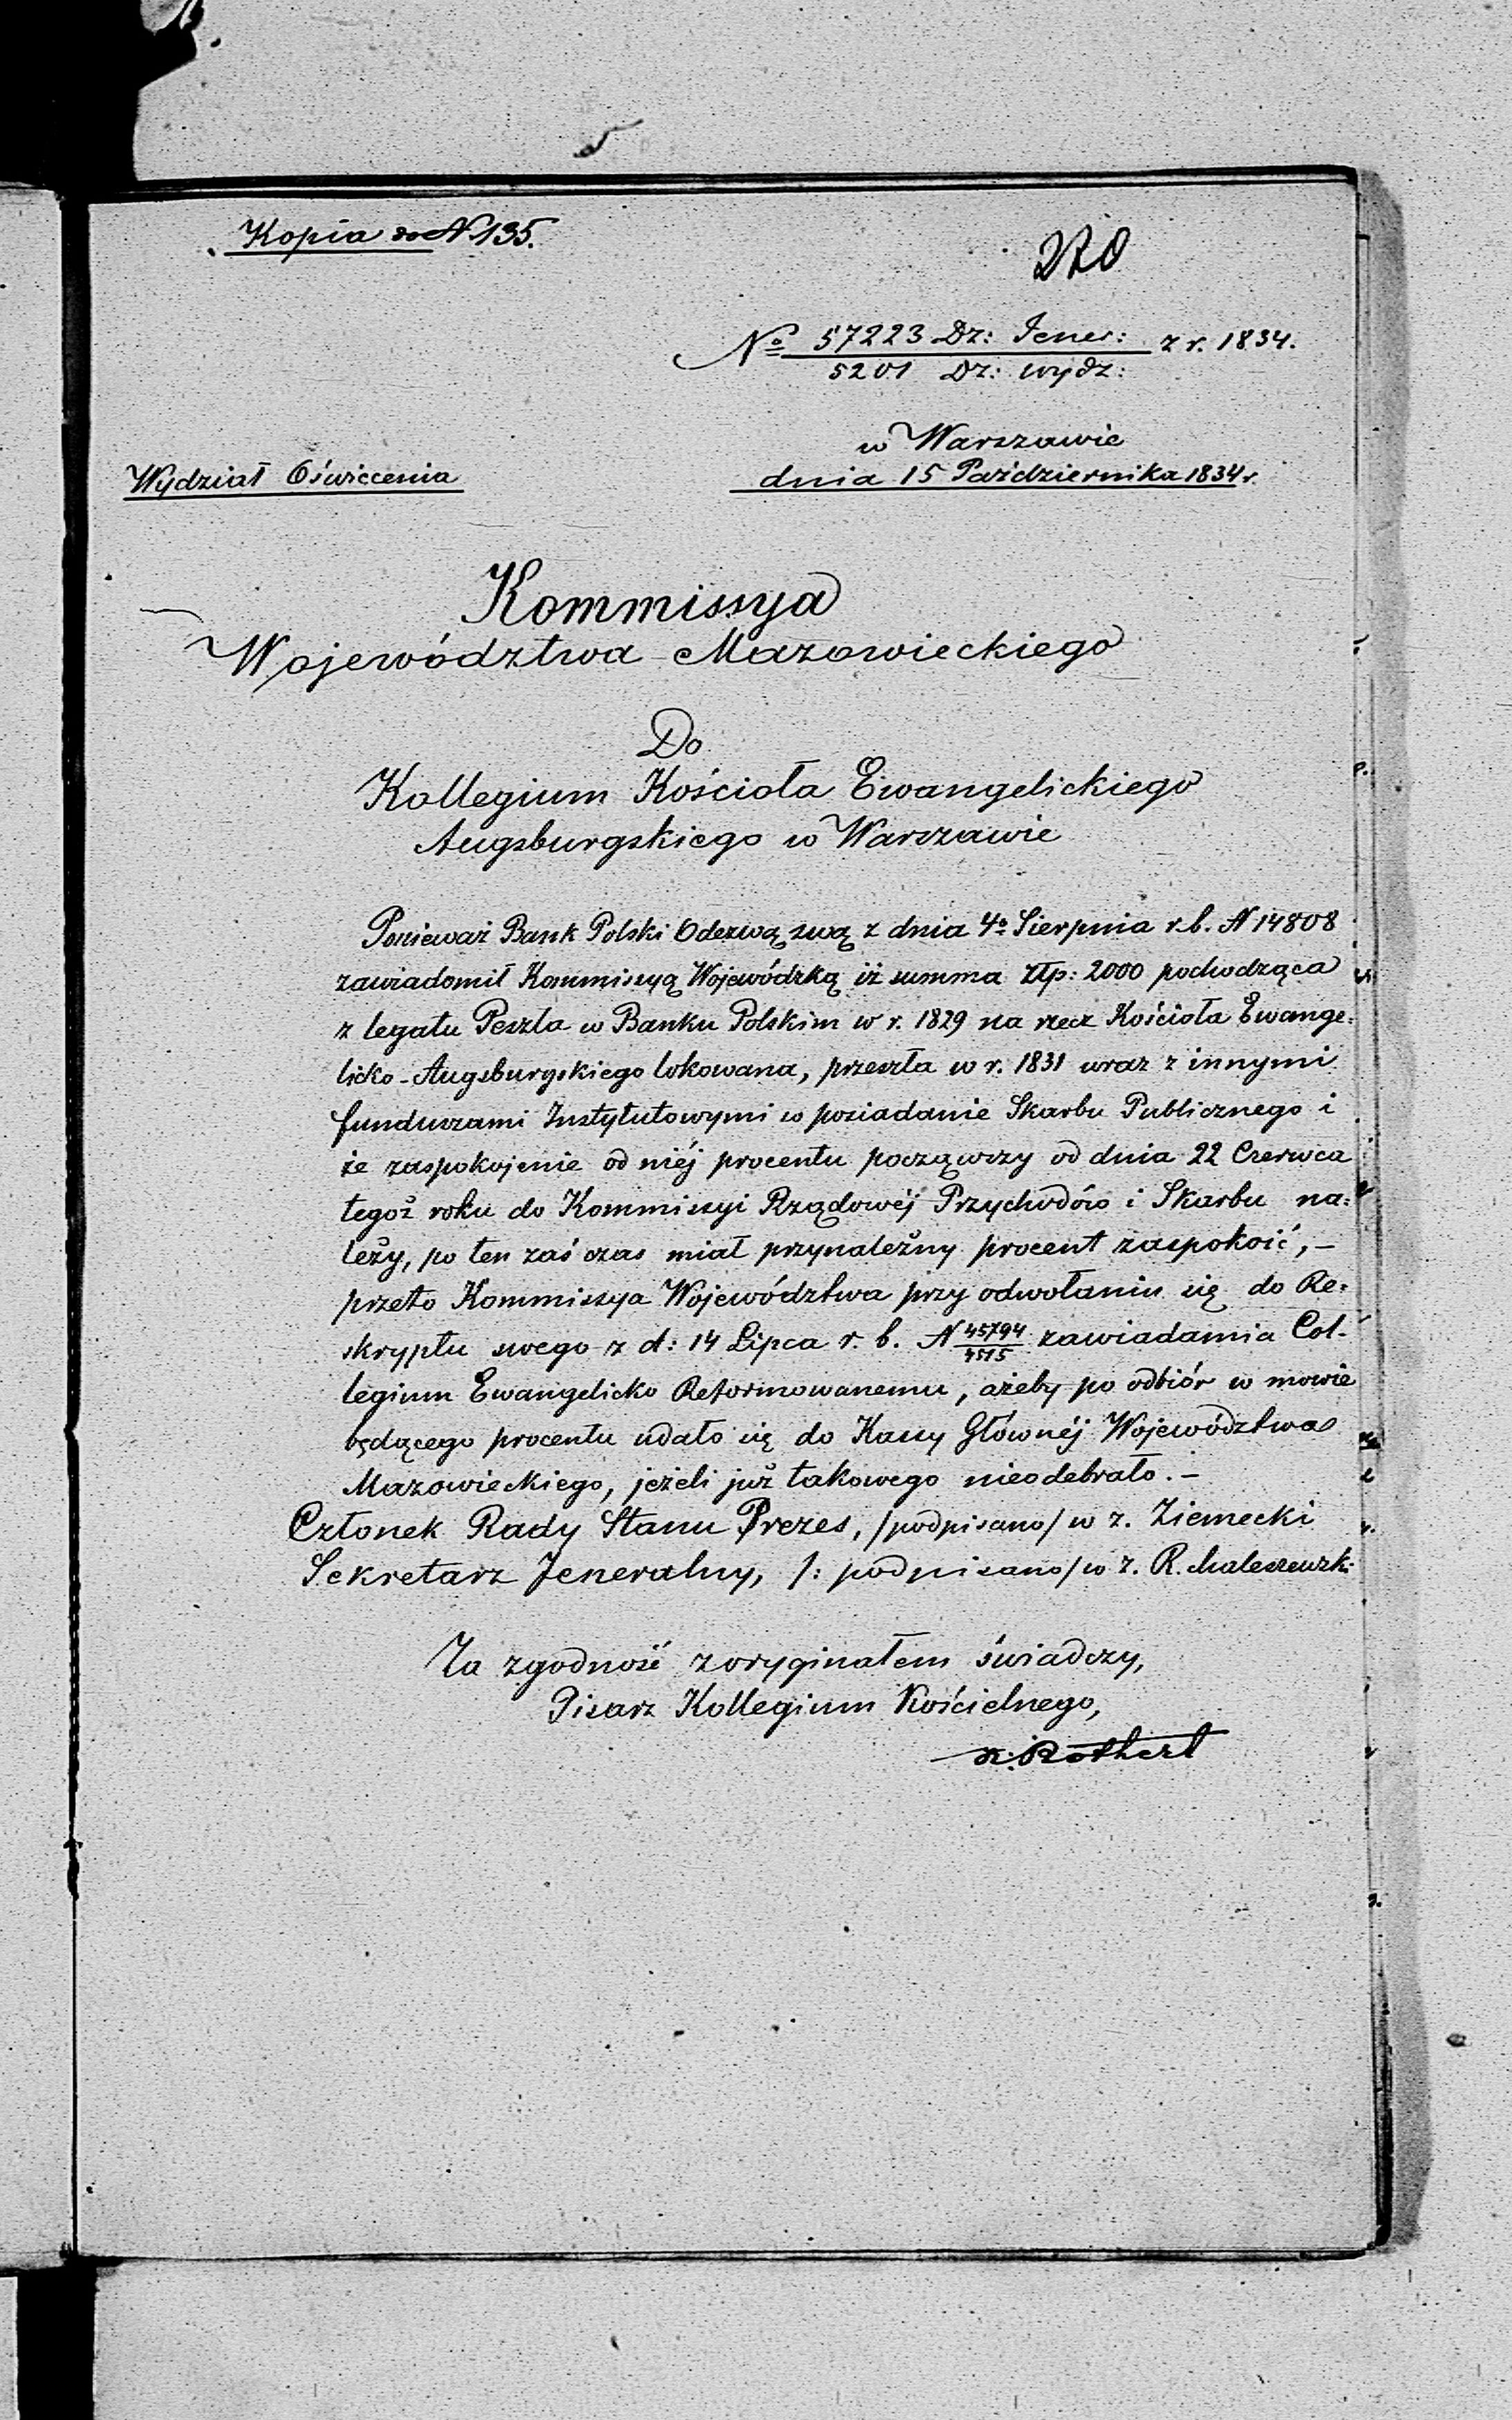 Kopia do N 135.
270
No 57223 Dz: Jener: z r. 1834.
5201 Dz: wydz:
w Warszawie
Wydział Oświecenia
dnia 15 Października 1834 r.
Kommissya
Województwa Mazowieckiego
Do
Kollegium Kościoła Ewangelickiego
Augsburgskiego w Warszawie
Ponieważ Bank Polski Odezwą swą z dnia 4o Sierpnia r.b. N 14808
zawiadomił Kommissyą Wojewódzką iż summa złp: 2000 pochodząca
z legatu Peszla w Banku Polskim w r. 1829 na rzecz Kościoła Ewange:
licko-Augsburgskiego lokowana, przeszła w r. 1831 wraz z innymi
funduszami Instytutowymi w posiadanie Skarbu Publicznego i
że zaspokojenie od niéj procentu począwszy od dnia 22 Czerwca
tegoż roku do Kommissyi Rządowéj Przychodów i Skarbu na:
leży, po ten zaś czas miał przynależny procent zaspokoić, –
przeto Kommissya Województwa przy odwołaniu się do Re:
skryptu swego z d: 14 Lipca r. b. N 45794/4515 zawiadamia Col-
legium Ewangelicko Reformowanemu, ażeby po odbiór w mowie
będącego procentu udało się do Kassy Głównéj Województwa
Mazowieckiego, jeżeli już takowego nieodebrało. –
Członek Rady Stanu Prezes, /podpisano/ w z. Ziemecki
Sekretarz Jeneralny, /: podpisano/ w z. R. Maleszewski
Za zgodność z oryginałem świadczy,
Pisarz Kollegium Kościelnego,
Rothert